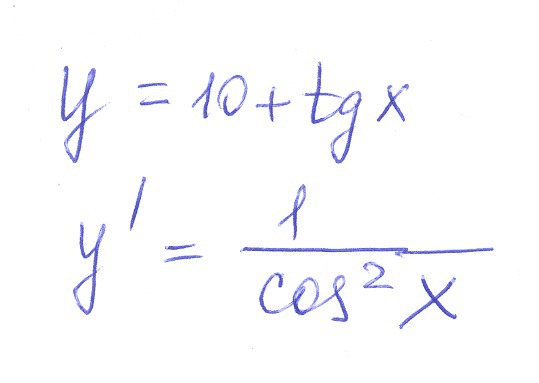 y = 10 + tg x
y' = 1 / cos² x